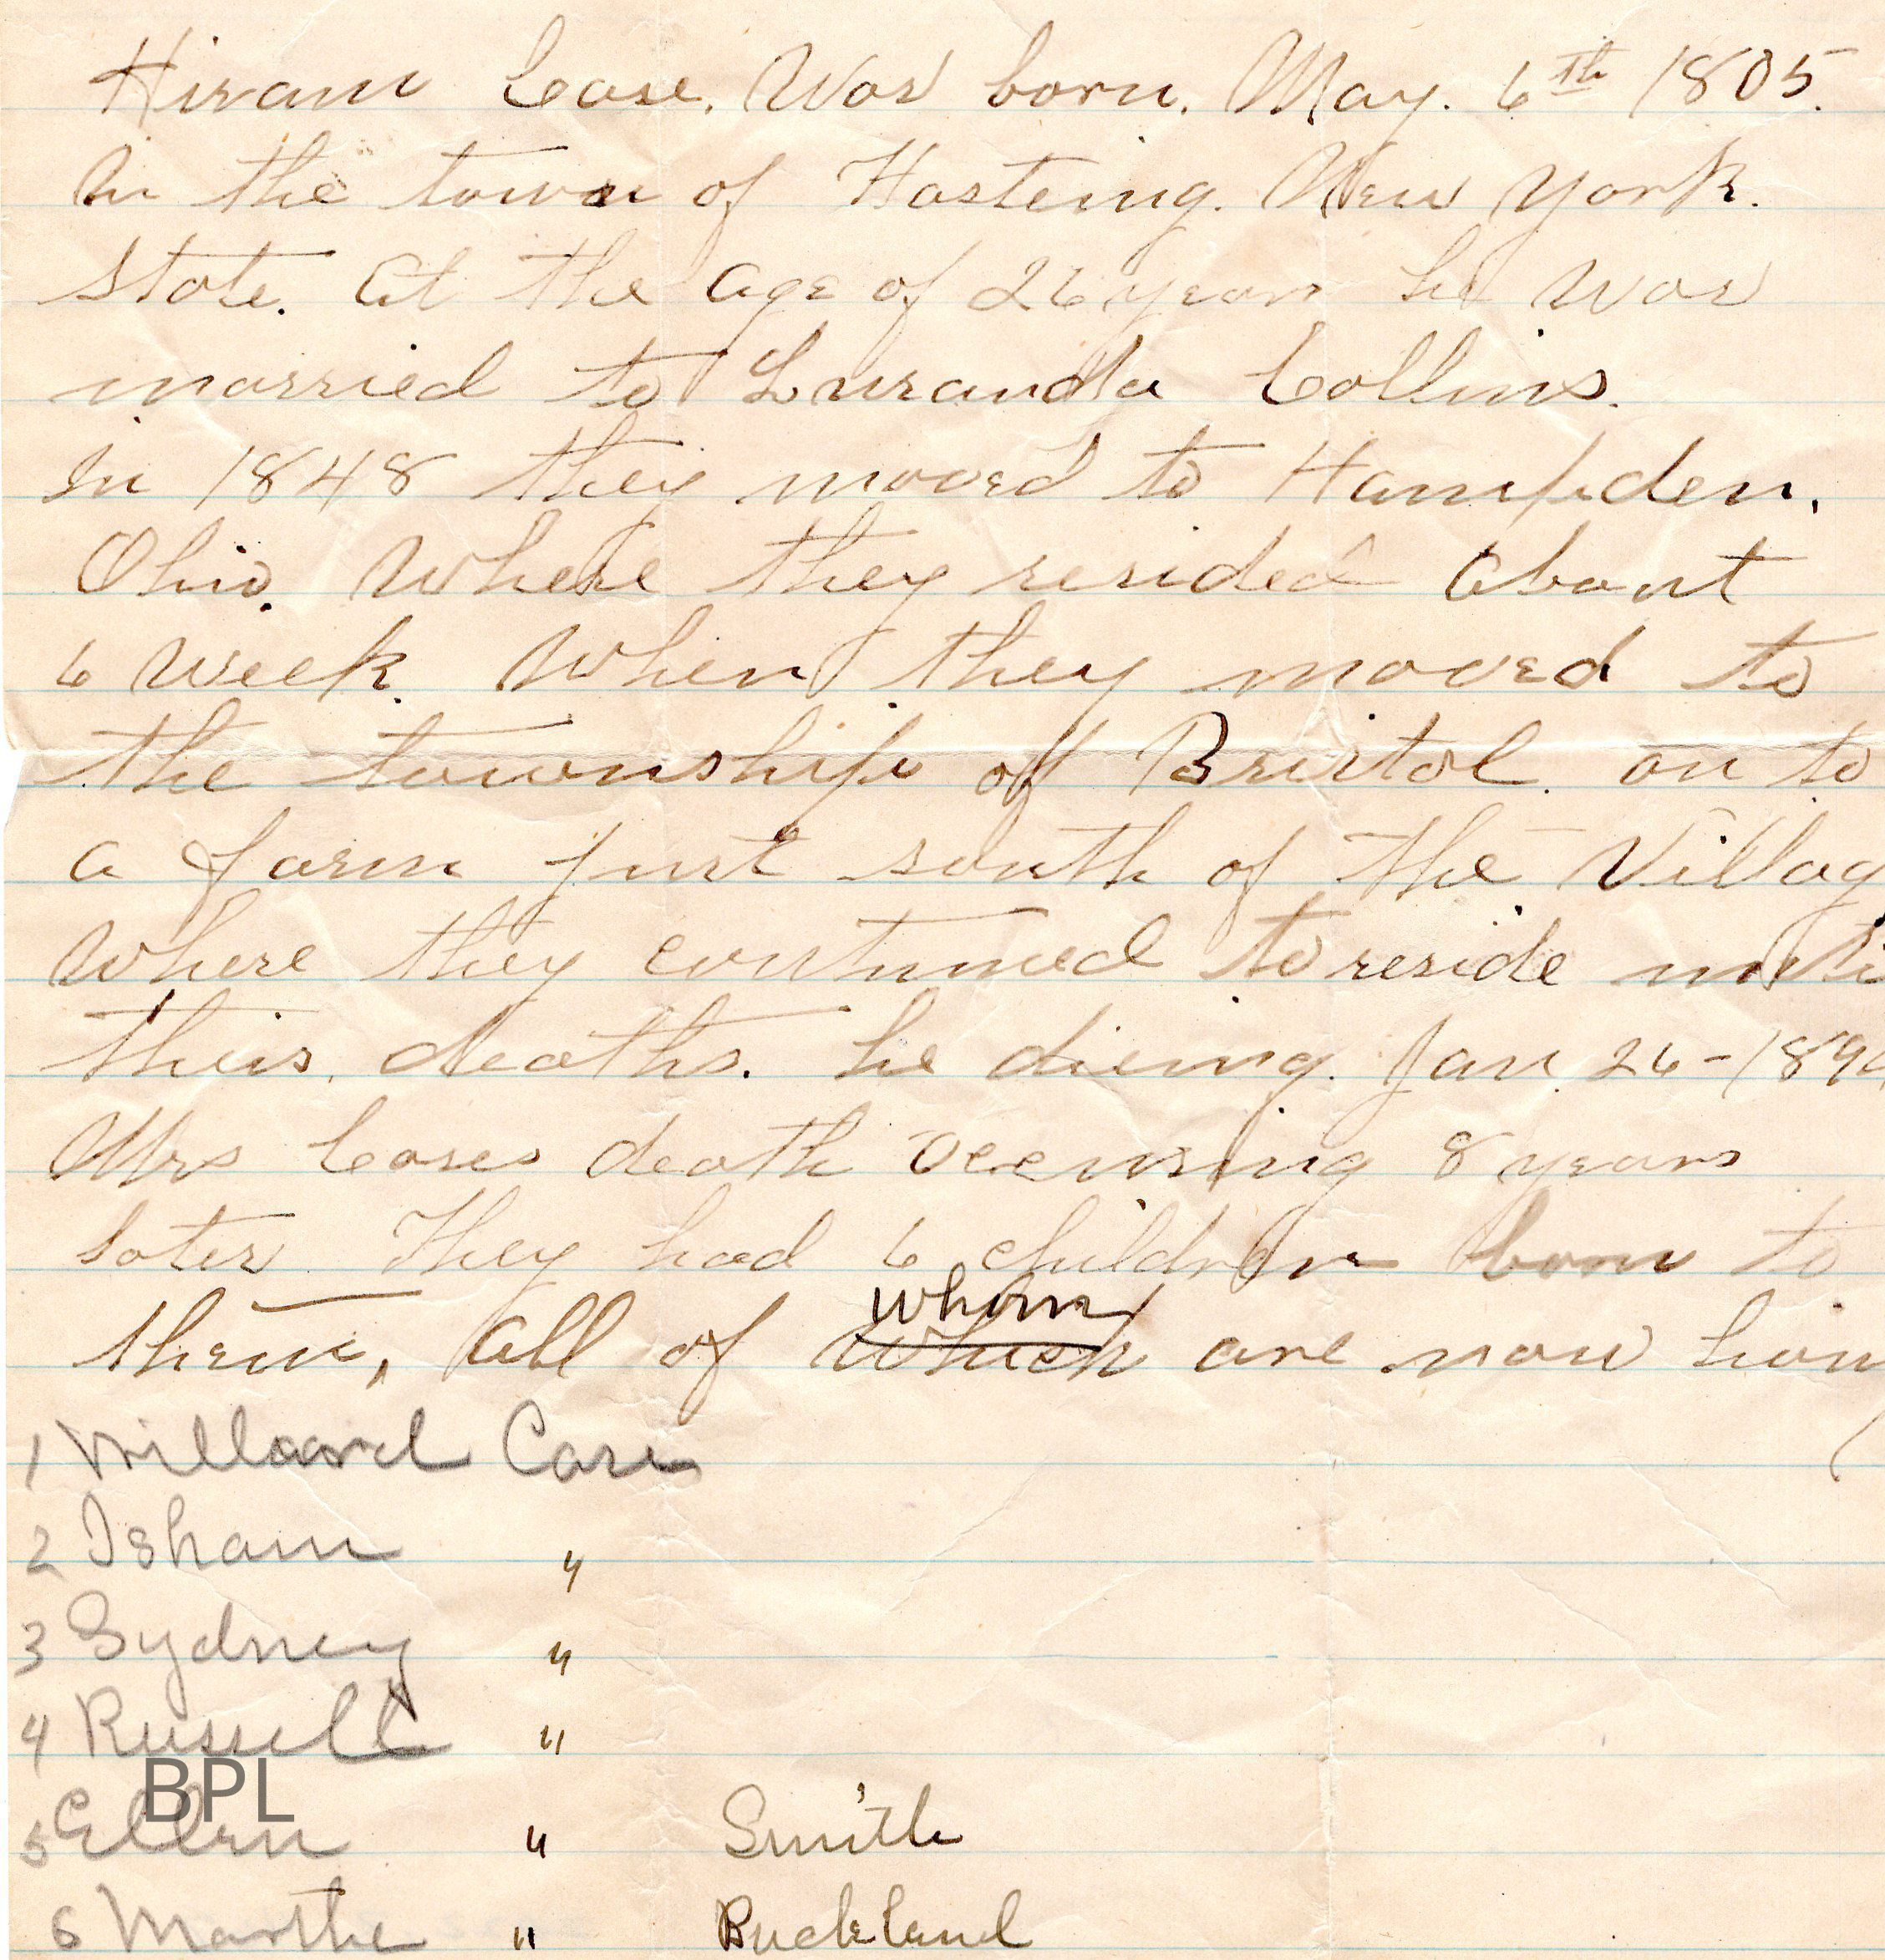 Hiram Case. Was born. May. 6th 1805.
In the town of Hasteing. New York.
State. At the age of 26 years he was
married to Luranda Collins.
In 1848 they moved to Hampden.
Ohio. Where they resided About
6 Week. When they moved to
the township of Bristol. on to
a farm just south of the Villag
Where they continued to reside unti
their deaths. he dieing. Jan 26-189
Mrs Cases death occurring 8 years
later. They had 6 children born to
whom
them, All of which are now livin
1 Willard Case
2 Isham "
3 Sydney "
4 Russell "
BPL
5 Ellen " Smith
6 Martha " Buckland